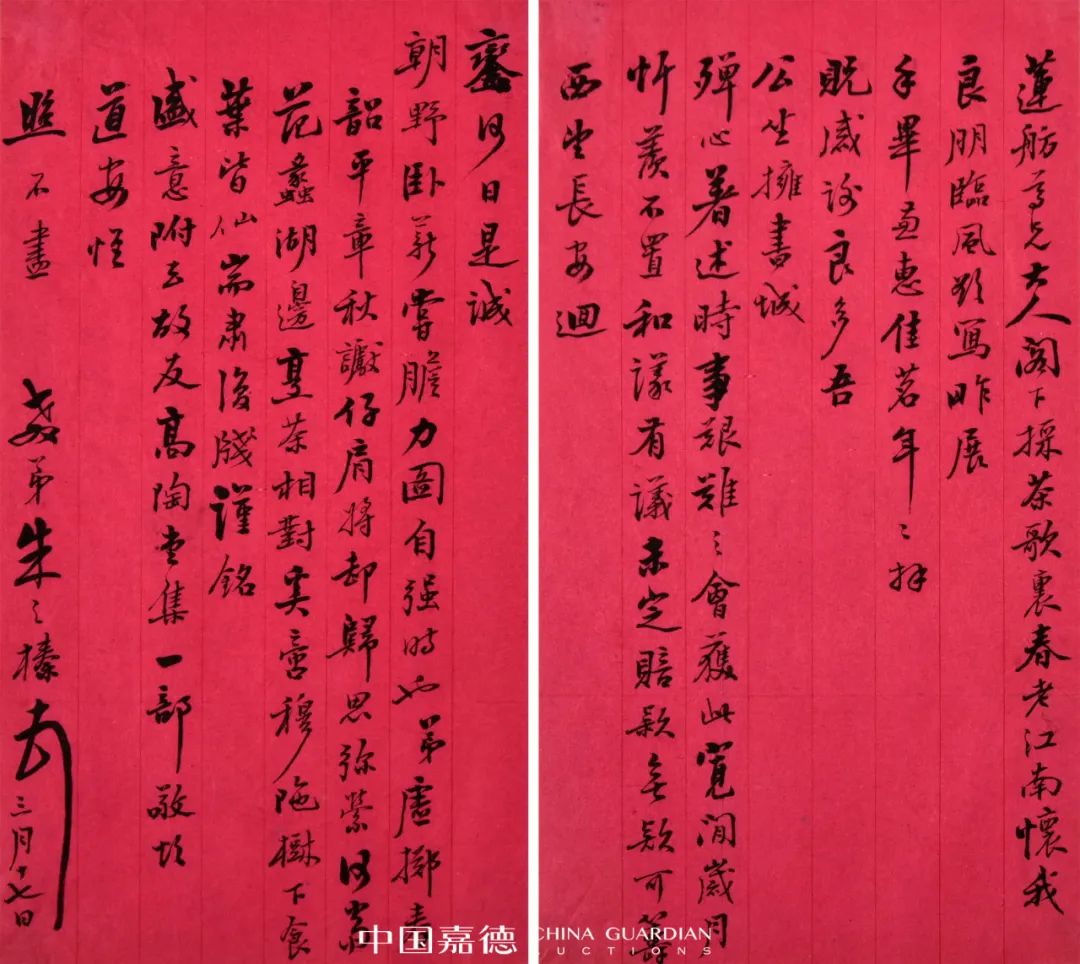 蓮舫尊兄大人閣下採茶歌裏春老江南懷我
良朋臨風欲寫昨展
手畢並惠佳茗年〻拜
貺感谢良多吾
公坐擁書城
殫心著述時事艱難〻會獲此寬閒歲月
忻羨不置和議有議未定賠款無款可籌
西望長安迴
鑾何日是誠
朝野卧薪嘗膽力圖自强時也弟虛擲春
韶平章秋讞仔肩將卸歸思弥縈何當
范蠡湖邊烹茶相對
葉皆仙耑肅復牋謹銘
盛意附去故友高陶堂集一部敬頌
道安惟
照不盡 教弟朱之榛頓 三月十七日
中国嘉德 CHINA GUARDIAN AUCTIONS